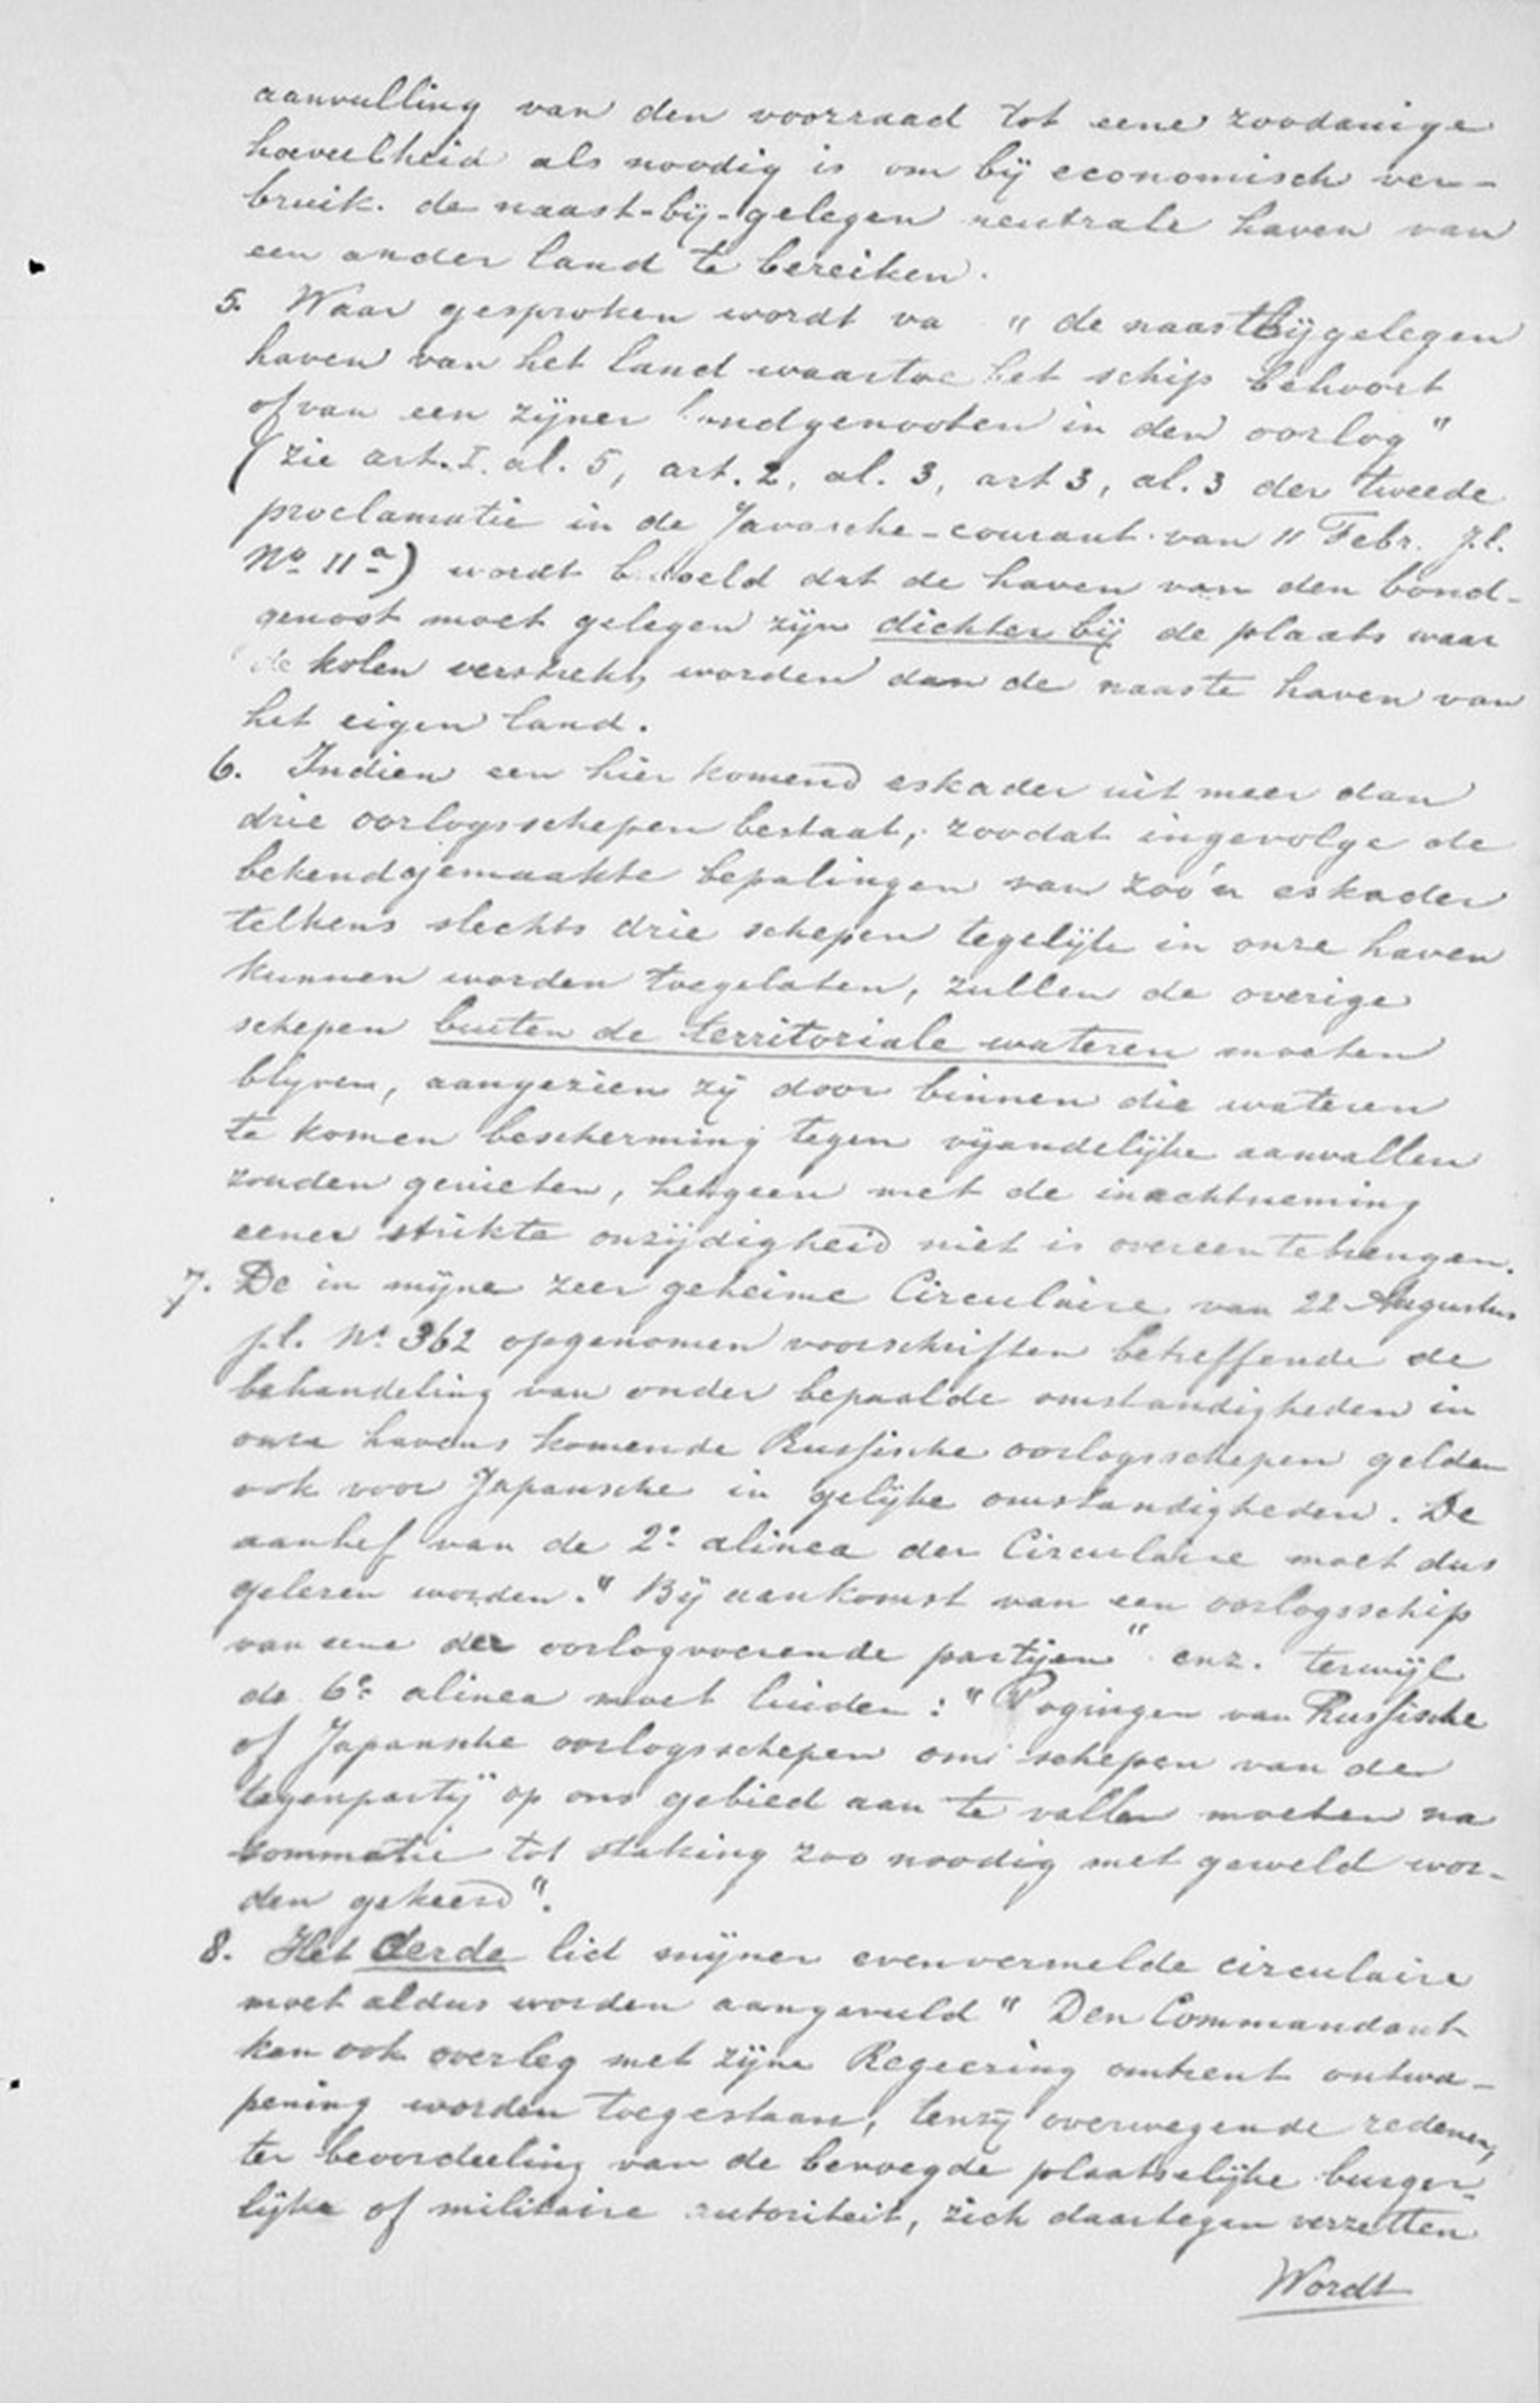 aanvulling van den voorraad tot eene zoodanige
hoeveelheid als noodig is om bij economisch ver-
bruik de naast-bij-gelegen neutrale haven van
een ander land te bereiken.
5. Waar gesproken wordt va " de naastbijgelegen
haven van het land waartoe het schip behoort
of van een zijner bondgenooten in den oorlog"
(zie art. I. al. 5, art. 2, al. 3, art 3, al. 3 der tweede
proclamatie in de Javasche-courant van 11 Febr. j.l.
No 11a) wordt bedoeld dat de haven van den bond-
genoot moet gelegen zijn dichter bij de plaats waar
de kolen verstrekt worden dan de naaste haven van
het eigen land.
6. Indien een hier komend eskader uit meer dan
drie oorlogsschepen bestaat, zoodat ingevolge de
bekendgemaakte bepalingen van zoo'n eskader
telkens slechts drie schepen tegelijk in onze haven
kunnen worden toegelaten, zullen de overige
schepen buiten de territoriale wateren moeten
blijven, aangezien zij door binnen die wateren
te komen bescherming tegen vijandelijke aanvallen
zouden genieten, hetgeen met de inachtneming
eener strikte onzijdigheid niet is overeen te brengen.
7. De in mijne zeer geheime Circulaire van 22 Augustus
j.l. No 362 opgenomen voorschriften betreffende de
behandeling van onder bepaalde omstandigheden in
onze havens komende Russische oorlogsschepen gelden
ook voor Japansche in gelijke omstandigheden. De
aanhef van de 2e alinea der Circulaire moet dus
gelezen worden: "Bij aankomst van een oorlogsschip
van eene der oorlogvoerende partijen" enz. terwijl
de 6e alinea moet luiden: "Pogingen van Russische
of Japansche oorlogsschepen om schepen van de
tegenpartij op ons gebied aan te vallen moeten na
sommatie tot staking zoo noodig met geweld wor-
den gekeerd".
8. Het derde lid mijner evenvermelde circulaire
moet aldus worden aangevuld " Den Commandant
kan ook overleg met zijne Regeering omtrent ontwa-
pening worden toegestaan, tenzij overwegende redenen,
ter beoordeeling van de bevoegde plaatselijke burger-
lijke of militaire autoriteit, zich daartegen verzetten
Wordt